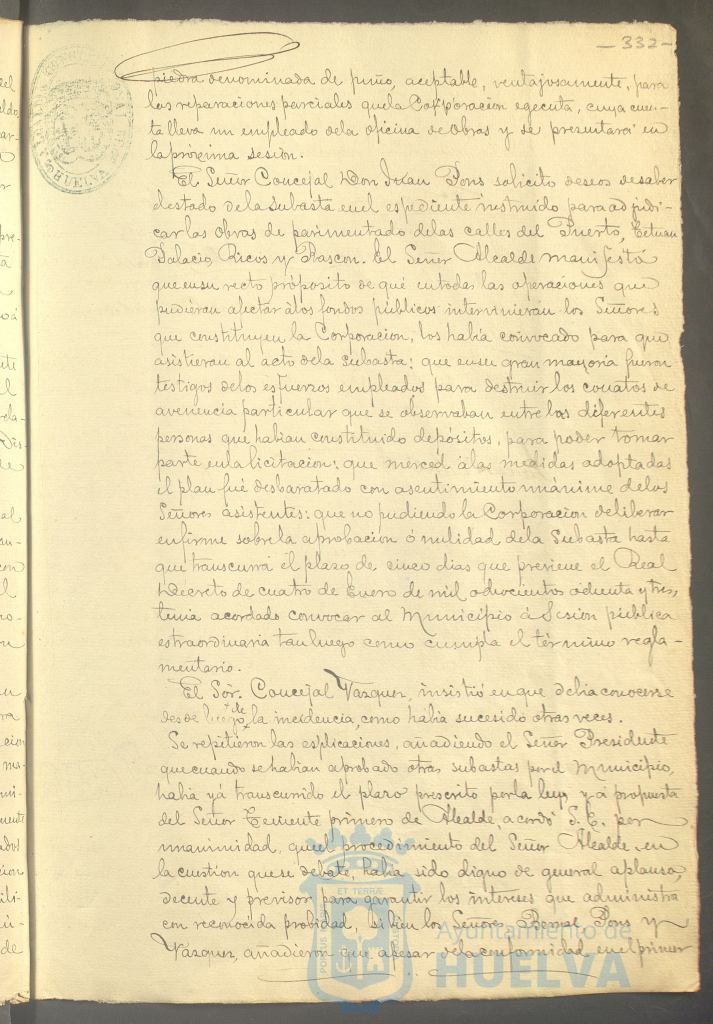 - 332 -
piedra denominada de puño, aceptable, ventajosamente, para
las reparaciones parciales que la Corporacion egecuta, cuya cuen-
ta lleva un empleado dela oficina de Obras y se presentará en
la próxima sesión.
El Señor Concejal Don Juan Pons solicitó deseos de saber
el estado de la subasta en el espediente instruido para adjudi-
car las Obras de pavimentado delas calles del Puerto, Tetuan
Palacio, Ricos y Rascon. El Señor Alcalde manifestó
que en su recto propósito de qué en todas las operaciones que
pudieran afectar á los fondos públicos intervinieran los Señores
que constituyen la Corporacion, los habia convocado para que
asistieran al acto dela subasta: que en su gran mayoría fueron
testigos delos esfuerzos empleados para destruir los conatos de
avenencia particular que se observaban entre las diferentes
personas que habian constituido depósitos, para poder tomar
parte en la licitacion: que merced á las medidas adoptadas
el plan fué desbaratado con asentimiento unánime delos
Señores asistentes: que no pudiendo la Corporacion deliberar
en firme sobre la aprobacion ó nulidad dela Subasta hasta
que transcurra el plazo de cinco dias que previene el Real
Decreto de cuatro de Enero de mil ochocientos ochenta y tres,
tenia acordado convocar al Municipio á Sesion pública
estraordinaria tan luego como cumpla el término regla-
mentario.
El Sór. Concejal Vazquez, insistió en que debia conocerse
desde luego de la incidencia, como habia sucedido otras veces.
Se repitieron las esplicaciones, añadiendo el Señor Presidente
que cuando se habian aprobado otras subastas por el Municipio,
habia yá transcurrido el plazo prescrito por la ley y á propuesta
del Señor Teniente primero de Alcalde, acordó S. E. por
unanimidad, que el procedimiento del Señor Alcalde en
la cuestion que se debate, habia sido digno de general aplauso,
decente y previsor para garantir los intereses que administra
con reconocida probidad, si bien los Señores Bernal Pons y
Vazquez, añadieron que apesar dela conformidad en el primer
HUELVA
ET TERRÆ
Ayuntamiento de
HUELVA